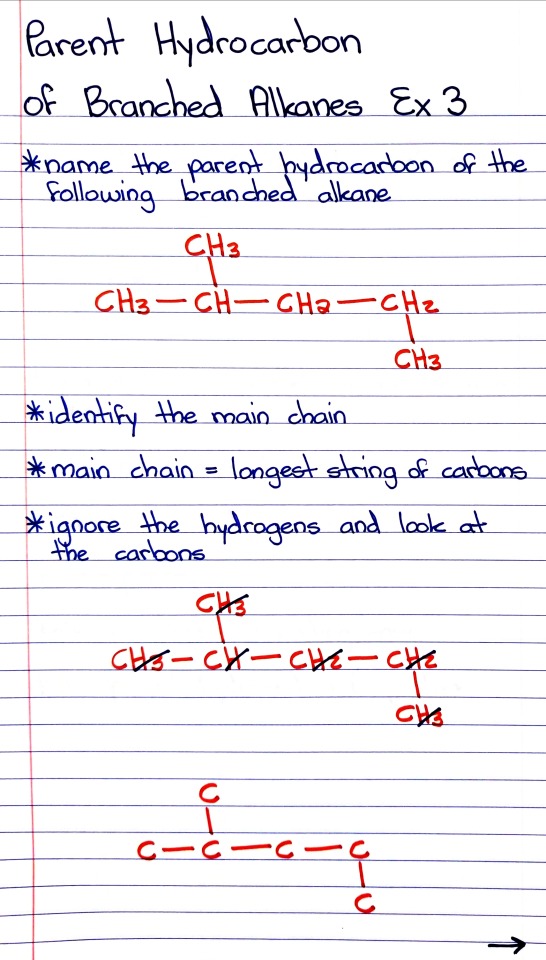 Parent Hydrocarbon
of Branched Alkanes Ex 3
*name the parent hydrocarbon of the
following branched alkane
CH3
CH3 — CH — CH2 — CH2
CH3
*identify the main chain
*main chain = longest string of carbons
*ignore the hydrogens and look at
the carbons
CH3
CH3 — CH — CH2 — CH2
CH3
C
C — C — C — C
C
→